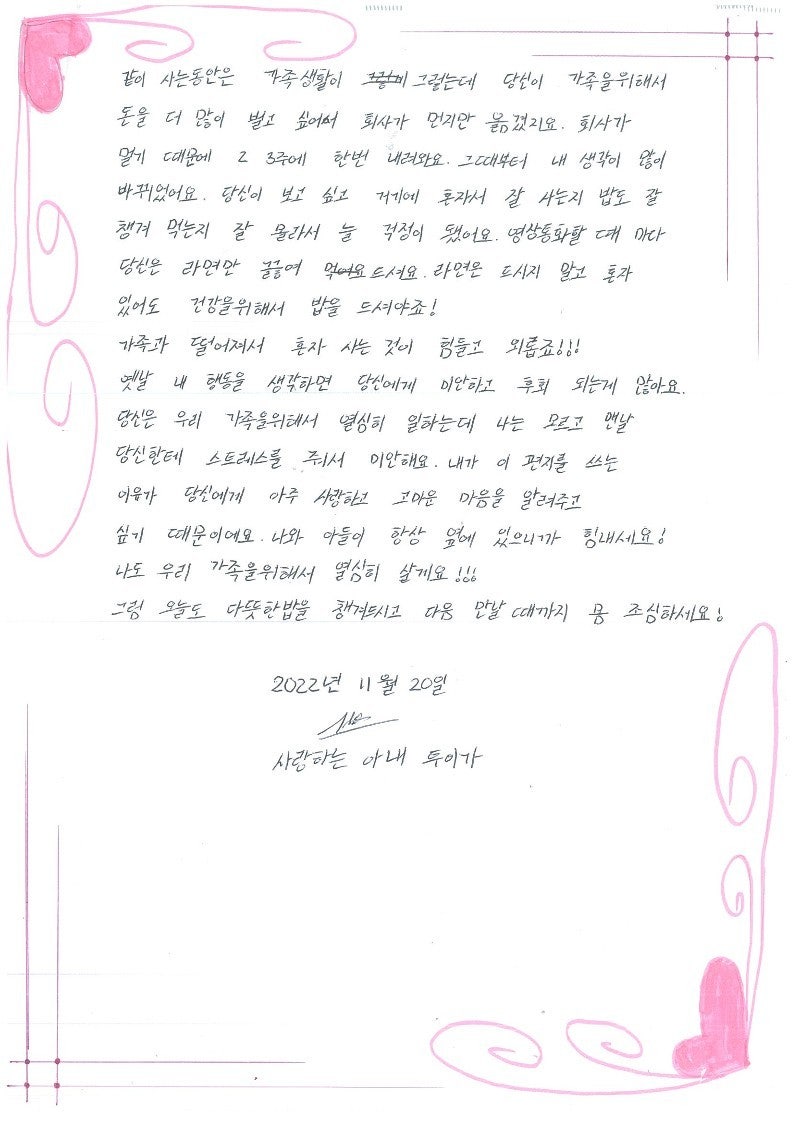 같이 사는동안은 가족생활이 그렇는데 당신이 가족을위해서
돈을 더 많이 벌고 싶어서 회사가 먼지만 옮겼지요. 회사가
멀기 때문에 2 3주에 한번 내려와요. 그때부터 내 생각이 많이
바뀌었어요. 당신이 보고 싶고 거기에 혼자서 잘 사는지 밥도 잘
챙겨 먹는지 잘 몰라서 늘 걱정이 됐어요. 영상통화할 때 마다
당신은 라면만 끓여 드셔요. 라면은 드시지 말고 혼자
있어도 건강을위해서 밥을 드셔야죠!
가족과 떨어져서 혼자 사는 것이 힘들고 외롭죠!!!
옛날 내 행동을 생각하면 당신에게 미안하고 후회 되는게 많아요.
당신은 우리 가족을위해서 열심히 일하는데 나는 모르고 맨날
당신한테 스트레스를 줘서 미안해요. 내가 이 편지를 쓰는
이유가 당신에게 아주 사랑하고 고마운 마음을 알려주고
싶기 때문이예요. 나와 아들이 항상 옆에 있으니까 힘내세요!
나도 우리 가족을위해서 열심히 살게요!!!
그럼 오늘도 따뜻한밥을 챙겨드시고 다음 만날 때까지 몸 조심하세요!
2022년 11월 20일
사랑하는 아내 투이가